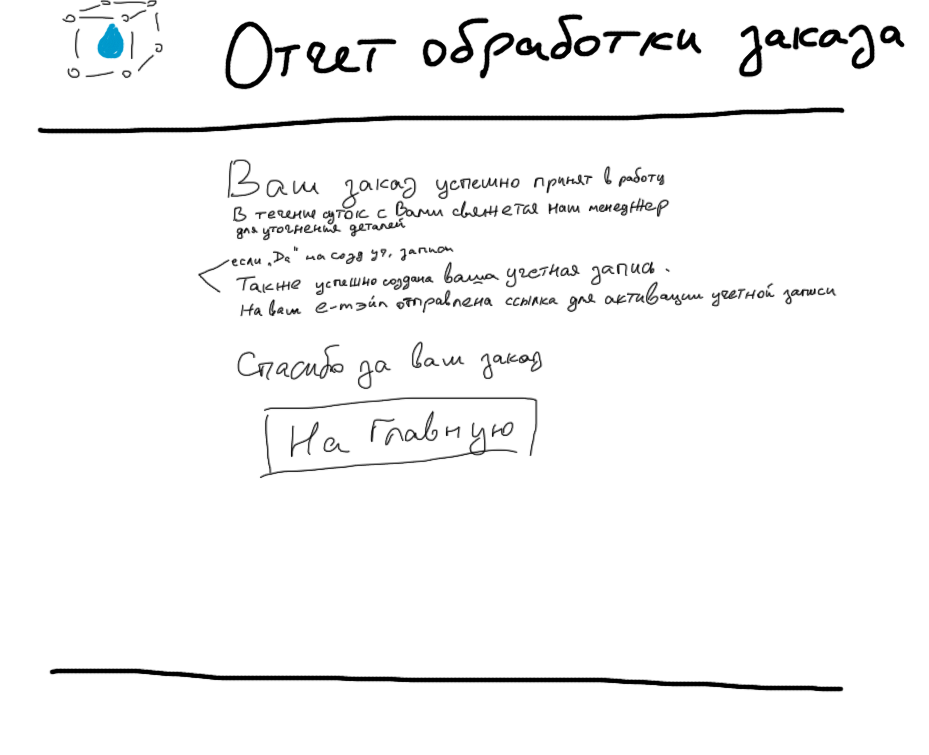 Отчет обработки заказа
Ваш заказ успешно принят в работу
В течение суток с Вами свяжется наш менеджер
для уточнения деталей
если „Да" на созд уч. записи
Также успешно создана ваша учетная запись.
На ваш е-мэйл отправлена ссылка для активации учетной записи
Спасибо за ваш заказ
На Главную